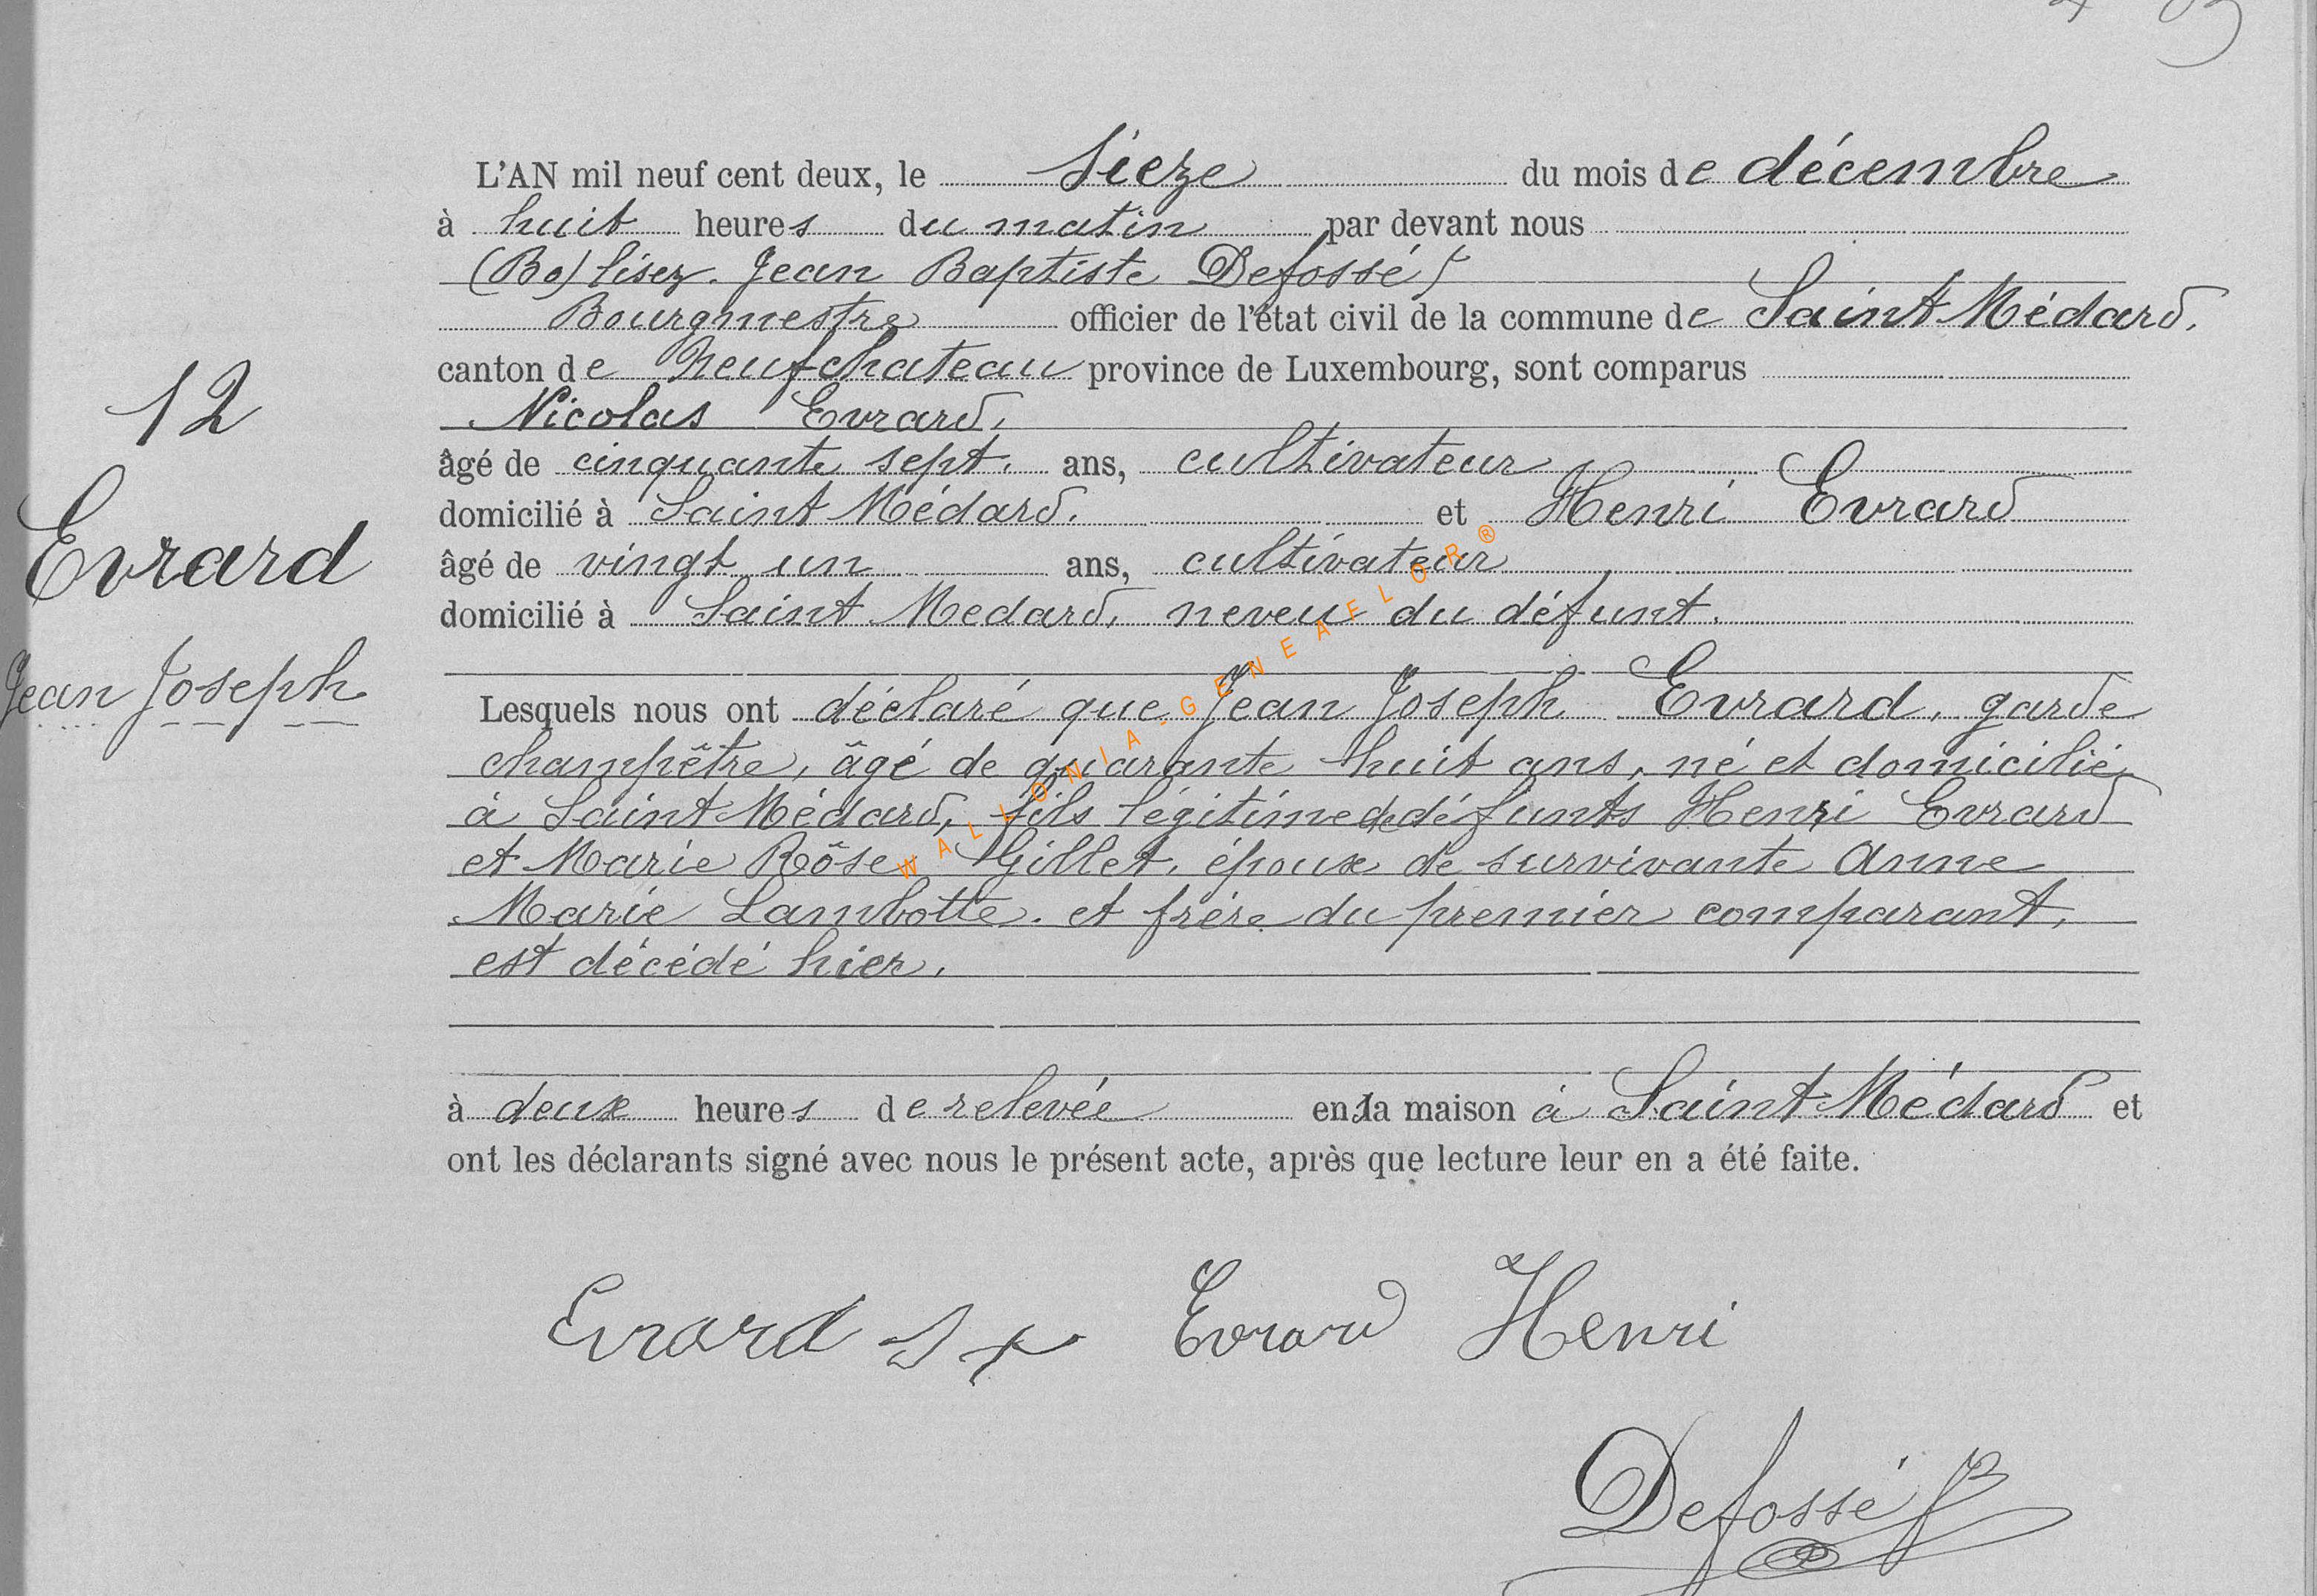 L'AN mil neuf cent deux, le sieze du mois de décembre
à huit heures du matin par devant nous
(Bo) lisez. Jean Baptiste Defossé
Bourgmestre officier de l'état civil de la commune de Saint Médard.
canton de Neufchateau province de Luxembourg, sont comparus
12
Nicolas Evrard,
âgé de cinquante sept. ans, cultivateur
domicilié à Saint Médard. et Henri Evrard
Evrard
âgé de vingt un ans, cultivateur
domicilié à Saint Medard, neveu du défunt.
Jean Joseph
Lesquels nous ont déclaré que Jean Joseph Evrard, garde
champêtre, âgé de quarante huit ans, né et domicilié
à Saint Médard, fils légitime de défunts Henri Evrard
et Marie Rôse Gillet, époux de survivante Anne
Marie Lambotte. et frére du premier comparant,
est décédé hier.
à deux heures de relevée en la maison à Saint Médard et
ont les déclarants signé avec nous le présent acte, après que lecture leur en a été faite.
Evrard Evrard Henri
Defossé
WALLONIA-GENEAFLOR®